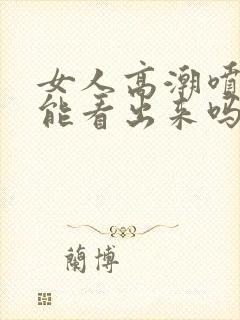 女人高潮喷
能看出来吗
蘭博